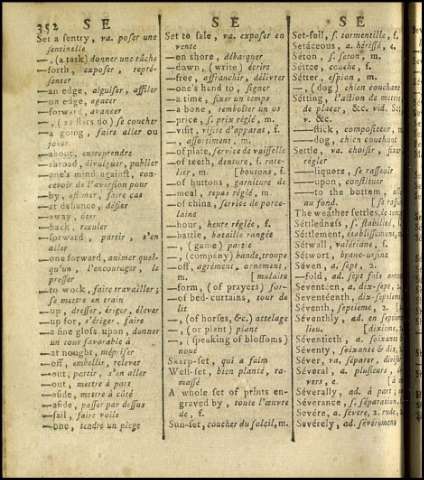 352 S E
S E
S E
Set a sentry, va. poser une
sentinelle
—, (a task) donner une tâche
—forth, exposer, repré-
senter
—an edge, aiguiser, affiler
—on edge, agacer
—forward, avancer
—, (as stars do) se coucher
—a going, faire aller ou
jouer
—about, entreprendre
—abroad, divulguer, publier
—one's mind against, con-
cevoir de l'aversion pour
—by, estimer, faire cas
—at defiance, défier
—away, ôter
—back, reculer
—forward, partir, s'en
aller
—one forward, animer quel-
qu'un, l'encourager, le
presser
—to work, faire travailler;
se mettre en train
—up, dresser, ériger, élever
—up for, s'ériger, faire
—a fine gloss upon, donner
un tour favorable à
—at nought, mépriser
—off, embellir, relever
—out, partir, s'en aller
—out, mettre à part
—aside, mettre à côté
—aside, passer par dessus
—sail, faire voile
—one, tendre un piege
Set to sale, va. exposer en
vente
—on shore, débarquer
—dawn, (write) écrire
—free, affranchir, délivrer
—one's hand to, signer
—a time, fixer un temps
—a bone, remboîter un os
—price, f. prix réglé, m.
—visit, visite d'apparat, f.
—, assortiment, m.
—of plate, service de vaisselle
—of teeth, denture, f. rate-
lier, m. [boutons, f.
—of buttons, garniture de
—meal, repas réglé, m.
—of china, service de porce-
laine
—hour, heure réglée, f.
—battle, bataille rangée
—, (game) partie
—, (company) bande, troupe
—off, agrément, ornement,
m. [malaire
—form, (of prayers) for-
—of bed-curtains, tour de
lit
—, (of horses, &c.) attelage
—, (or plant) plant
—, (speaking of blossoms)
noué
Sharp-set, qui a faim
Well-set, bien planté, ra-
massé
A whole set of prints en-
graved by, toute l'œuvre
de, f.
Sun-set, coucher du soleil, m.
Set-foil, s. tormentille, f.
Setáceous, a. hérissé, e.
Séton, s. seton, m.
Séttee, couche, f.
Sétter, espion, m.
—, (dog) chien couchant
Sétting, l'action de mettre,
de placer, &c. vid. Set,
v. &c.
—stick, compositeur, m.
—dog, chien couchant
Settle, va. choisir, fixer
régler
—liquets, se rasseoir
—upon, constituer
—to the bottom, aller
au fond. [se rasseoir
The weather settles, le temps
Séttledness, s. stabilité, f.
Settlement, établissement, m.
Sétwall, valériane, f.
Sétwort, branc-ursine
Séven, a. sept, 2.
—fold, ad. sept fois autant
Seventeen, a. dix-sept, 2.
Seventéenth, dix-septième
Séventh, septieme, 2.
Séventhly, ad. en septieme
lieu. [dixieme,
Séventieth, a. soixante
Séventy, soixante & dix
Séver, va. séparer, diviser
Séveral, a. plusieurs, di-
vers, e. [m.
Séverally, ad. à part;
Séverance, s. séparation,
Sevére, a. sévere, 2. rude,
Sevérely, ad. sévérement